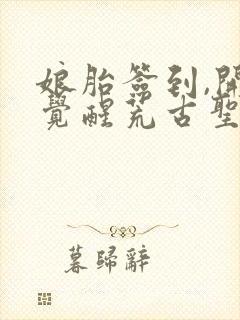 娘胎簽到,開
覺醒荒古聖
暮歸辭